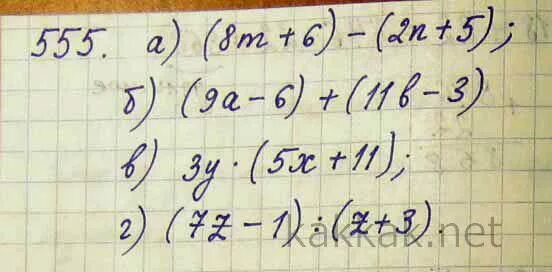 555. а) (8m + 6) - (2n + 5);
б) (9а - 6) + (11в - 3)
в) 3у · (5х + 11);
г) (7z - 1) : (z + 3).
kakkak.net